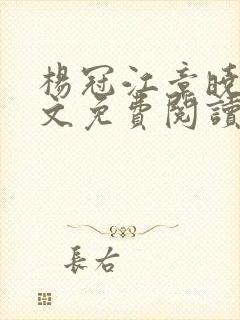 楊冠江章晓
文免費閱讀
長右